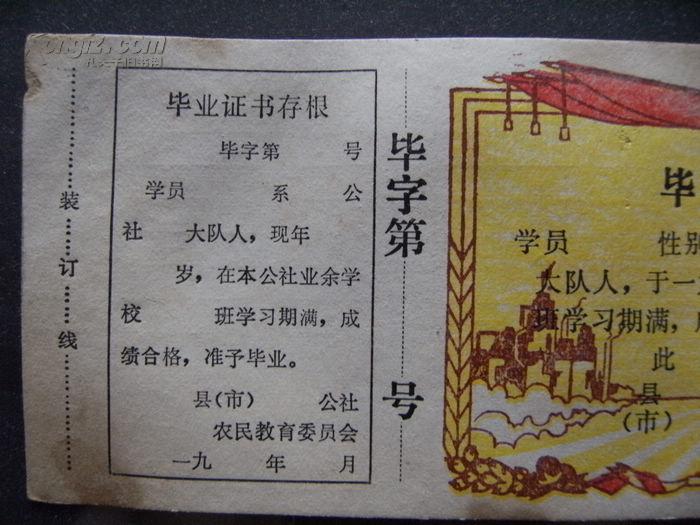 ongfz.com
孔夫子旧书网
装订线
毕业证书存根
毕字第 号
学员 系 公
社 大队人，现年
岁，在本公社业余学
校 班学习期满，成
绩合格，准予毕业。
县(市) 公社
农民教育委员会
一九 年 月
毕字第 号
毕
学员 性别
大队人，于一
班学习期满，
此
县
(市)